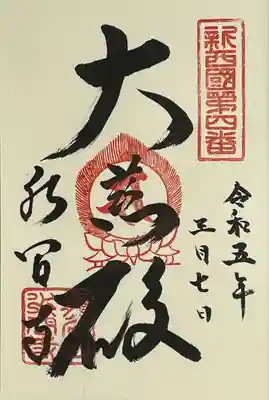 新西國第四番
令和五年
三月七日
大慈殿
水間寺